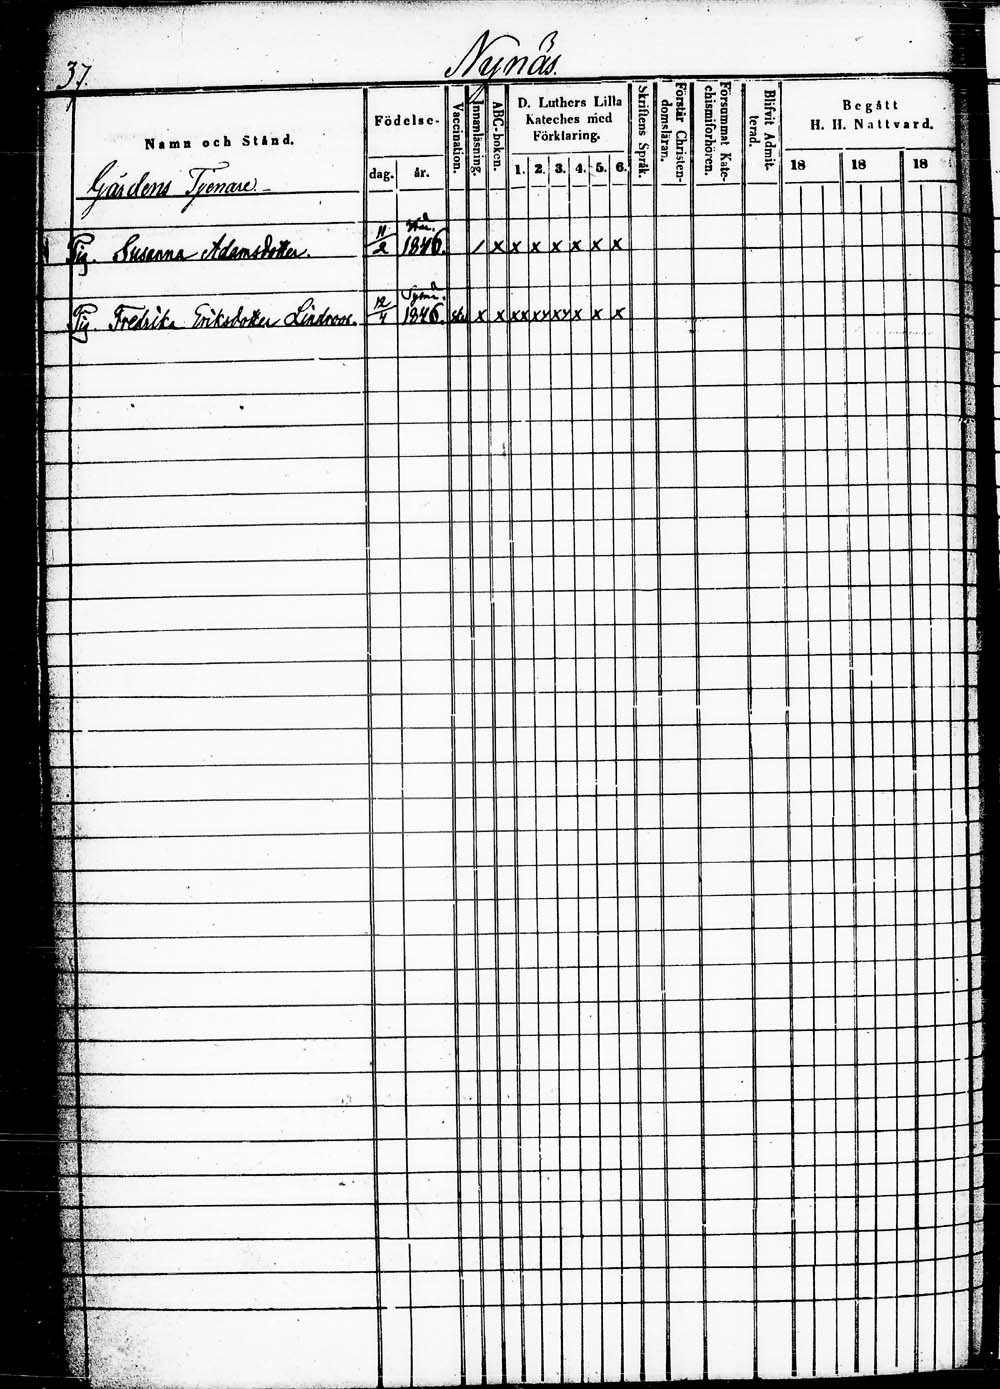 37.
Nynäs.
Namn och Stånd.
Födelse-
dag. år.
Vaccination.
Innanläsning.
ABC-boken.
D. Luthers Lilla
Kateches med
Förklaring.
1. 2. 3. 4. 5. 6.
Skriftens Språk.
Förstår Christen-
domsläran.
Försummat Kate-
chismiförhören.
Blifvit Admit-
terad.
Begått
H. H. Nattvard.
18 18 18
Gårdens Tjenare
Pig. Susanna Adamsdotter. 11/2 1846. / x x x x x x x
Pig. Fredrika Eriksdotter Lindroos. 12/4 1846. x x xx xy xy x x x